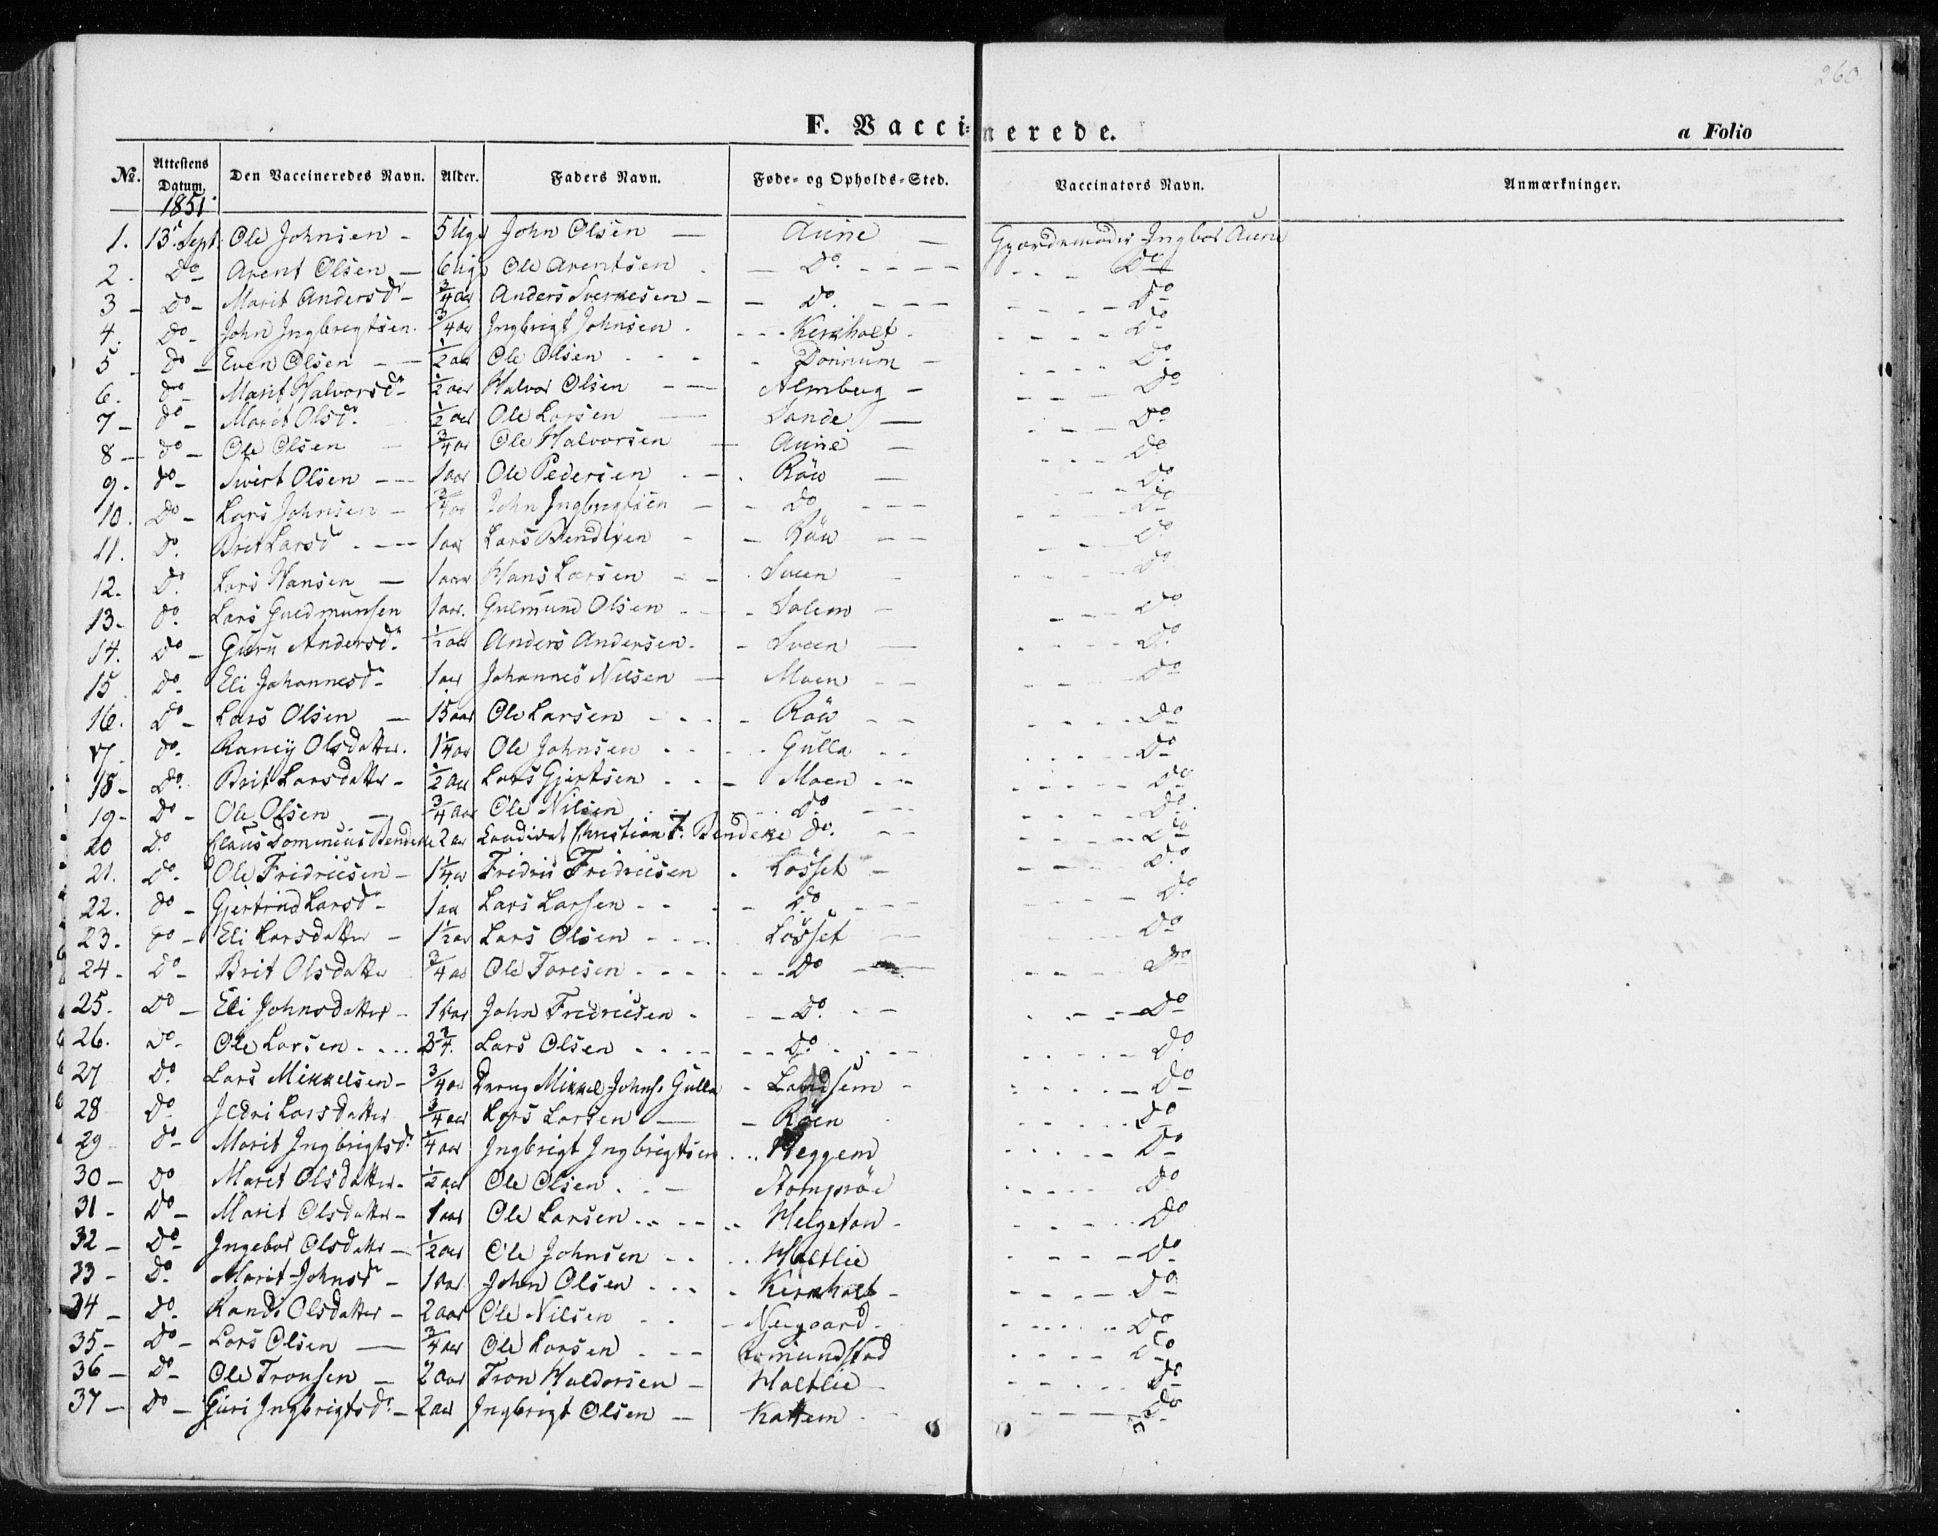 260
F. Vaccinerede.
a Folio
No. Attestens Datum. Den Vaccineredes Navn. Alder. Faders Navn. Føde- og Opholds-Sted. Vaccinators Navn. Anmærkninger.
1851
1. 13 Sept. Ole Johnsen - 5 Uger John Olsen — Aune — Gjordemoder Ingbor Aune
2. Do Arent Olsen — 6 Uger Ole Arentsen — Do. Do
3 - Do - Marit Andersdr - 3/4 aar Anders Sverkesen - Do. Do
4. Do - John Ingbrigtsen. 3/4 aar Ingbrigt Johnsen. Kirkholt. Do
5 - Do - Even Olsen - 1/2 aar Ole Olsen Donnum - Do
6. Do - Marit Halvorsdr - 1/2 aar Halvor Olsen — Almberg — Do
7 - Do - Marit Olsdr. 1/2 aar Ole Larsen — Sande — Do
8 - Do - Ole Olsen 3/4 aar Ole Halvorsen — Aune — Do
9. Do - Sivert Olsen - 1 aar Ole Pedersen Röw — Do
10. Do - Lars Johnsen - 3/4 aar John Ingbrigtsen - Do Do
11. Do. Brit Larsd - 1 aar Lars Bendixen - Röw Do
12. Do. Lars Hansen — 1 aar Hans Larsen - Sveen - Do
13. Do. Lars Guldmunsen 1 aar. Gulmund Olsen Solem - Do
14. Do - Guru Andersdr. 1/2 aar Anders Andersen. - Sveen — Do
15 Do - Eli Johannesdr 1 aar Johannes Nilsen — Moen Do
16. Do - Lars Olsen — 15 aar Ole Larsen Röw Do
17. Do. Raney Olsdatter. 1 1/4 aar Ole Johnsen Gulla Do
18 - Do. Brit Larsdatter - 1/2 aar Lars Gjertsen Moen Do
19 - Do - Ole Olsen — 3/4 aar Ole Nilsen Do Do
20 Do. Claus Domenicus Bendeke 2 aar Candidat Christian F. Bendeke Do. Do
21. Do - Ole Fridricsen - 1 1/4 aar Fridric Fridricsen Losset - Do
22. Do - Gjertrud Larsd - 1 aar Lars Larsen Do Do
23. Do - Eli Larsdatter - 1 1/2 aar Lars Olsen Losset Do
24 - Do - Brit Olsdatter 3/4 aar Ole Toresen Do Do
25. Do - Eli Johnsdatter - 1 aar John Fredricsen Do. Do
26. Do - Ole Larsen 3/4. Lars Olsen Do. Do
27 Do. Lars Mikkelsen - 3/4 aar Dreng Mikkel Johns. Gulla - Landsem Do
28 Do. Larsdatter 3/4 aar Lars Larsen — - Röen Do
29 Do - Marit Ingbrigtsdr 1/4 aar Ingbrigt Ingbrigtsen Heggem Do
30 - Do Marit Olsdatter. 1/2 aar Ole Olsen Stompröe Do
31 - Do - Marit Olsdatter - 1 aar Ole Larsen Helgeton - Do
32 - Do - Ingebor Olsdatter — 1/2 aar Ole Johnsen Holtlie Do
33 - Do. Marit Johnsd - 1 aar John Olsen Kirkholt - Do
34 - Do. Randi Olsdatter - 2 aar Ole Nilsen Nygaard. Do
35 - Do - Lars Olsen — 3/4 aar Ole Larsen Romundstad Do
36 - Do - Ole Tronsen — 2 aar Tron Haldorsen - Holtlie - Do
37 - Do - Guri Ingbrigtsdr - 2 aar Ingbrigt Olsen — Kattem Do